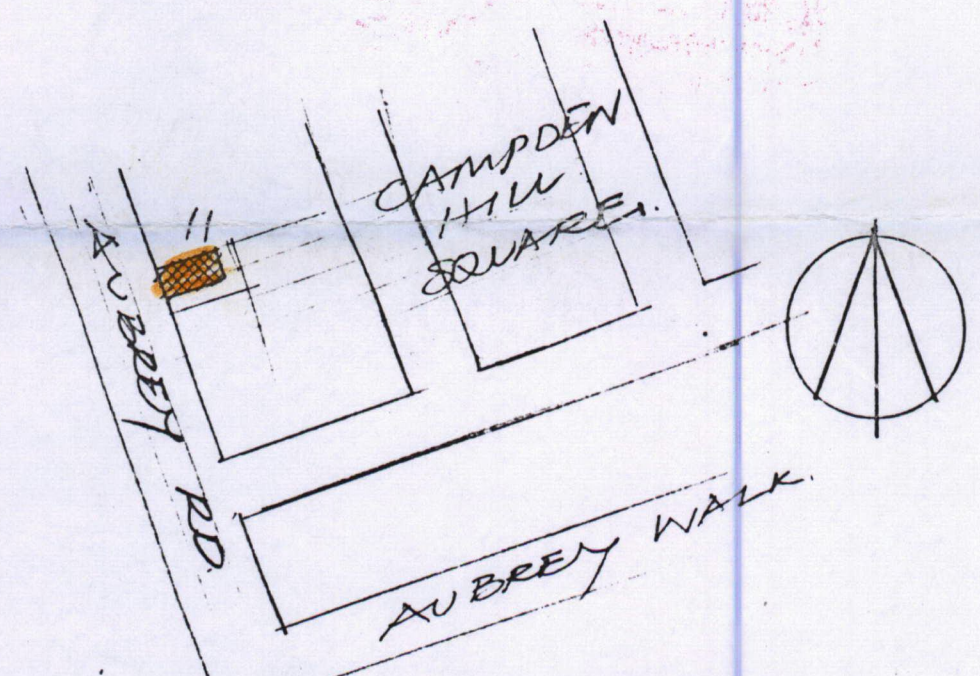 CAMPDEN
HILL
SQUARE.
11
AUBREY RD.
AUBREY WALK.